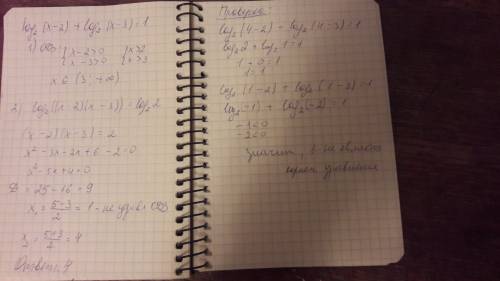 log₂(x-2) + log₂(x-3) = 1
1) ОДЗ: { x-2>0 { x>2
x-3>0 x>3
x ∈ (3; +∞)
2) log₂((x-2)(x-3)) = log₂2
(x-2)(x-3) = 2
x² - 3x - 2x + 6 - 2 = 0
x² - 5x + 4 = 0
D = 25 - 16 = 9
x₁ = (5-3)/2 = 1 - не удов. ОДЗ
x₂ = (5+3)/2 = 4
Ответ: 4
Проверка:
log₂(4-2) + log₂(4-3) = 1
log₂2 + log₂1 = 1
1 + 0 = 1
1 = 1
log₂(1-2) + log₂(1-3) = 1
log₂(-1) + log₂(-2) = 1
-1<0
-2<0
Значит, 1 не является
корнем уравнения